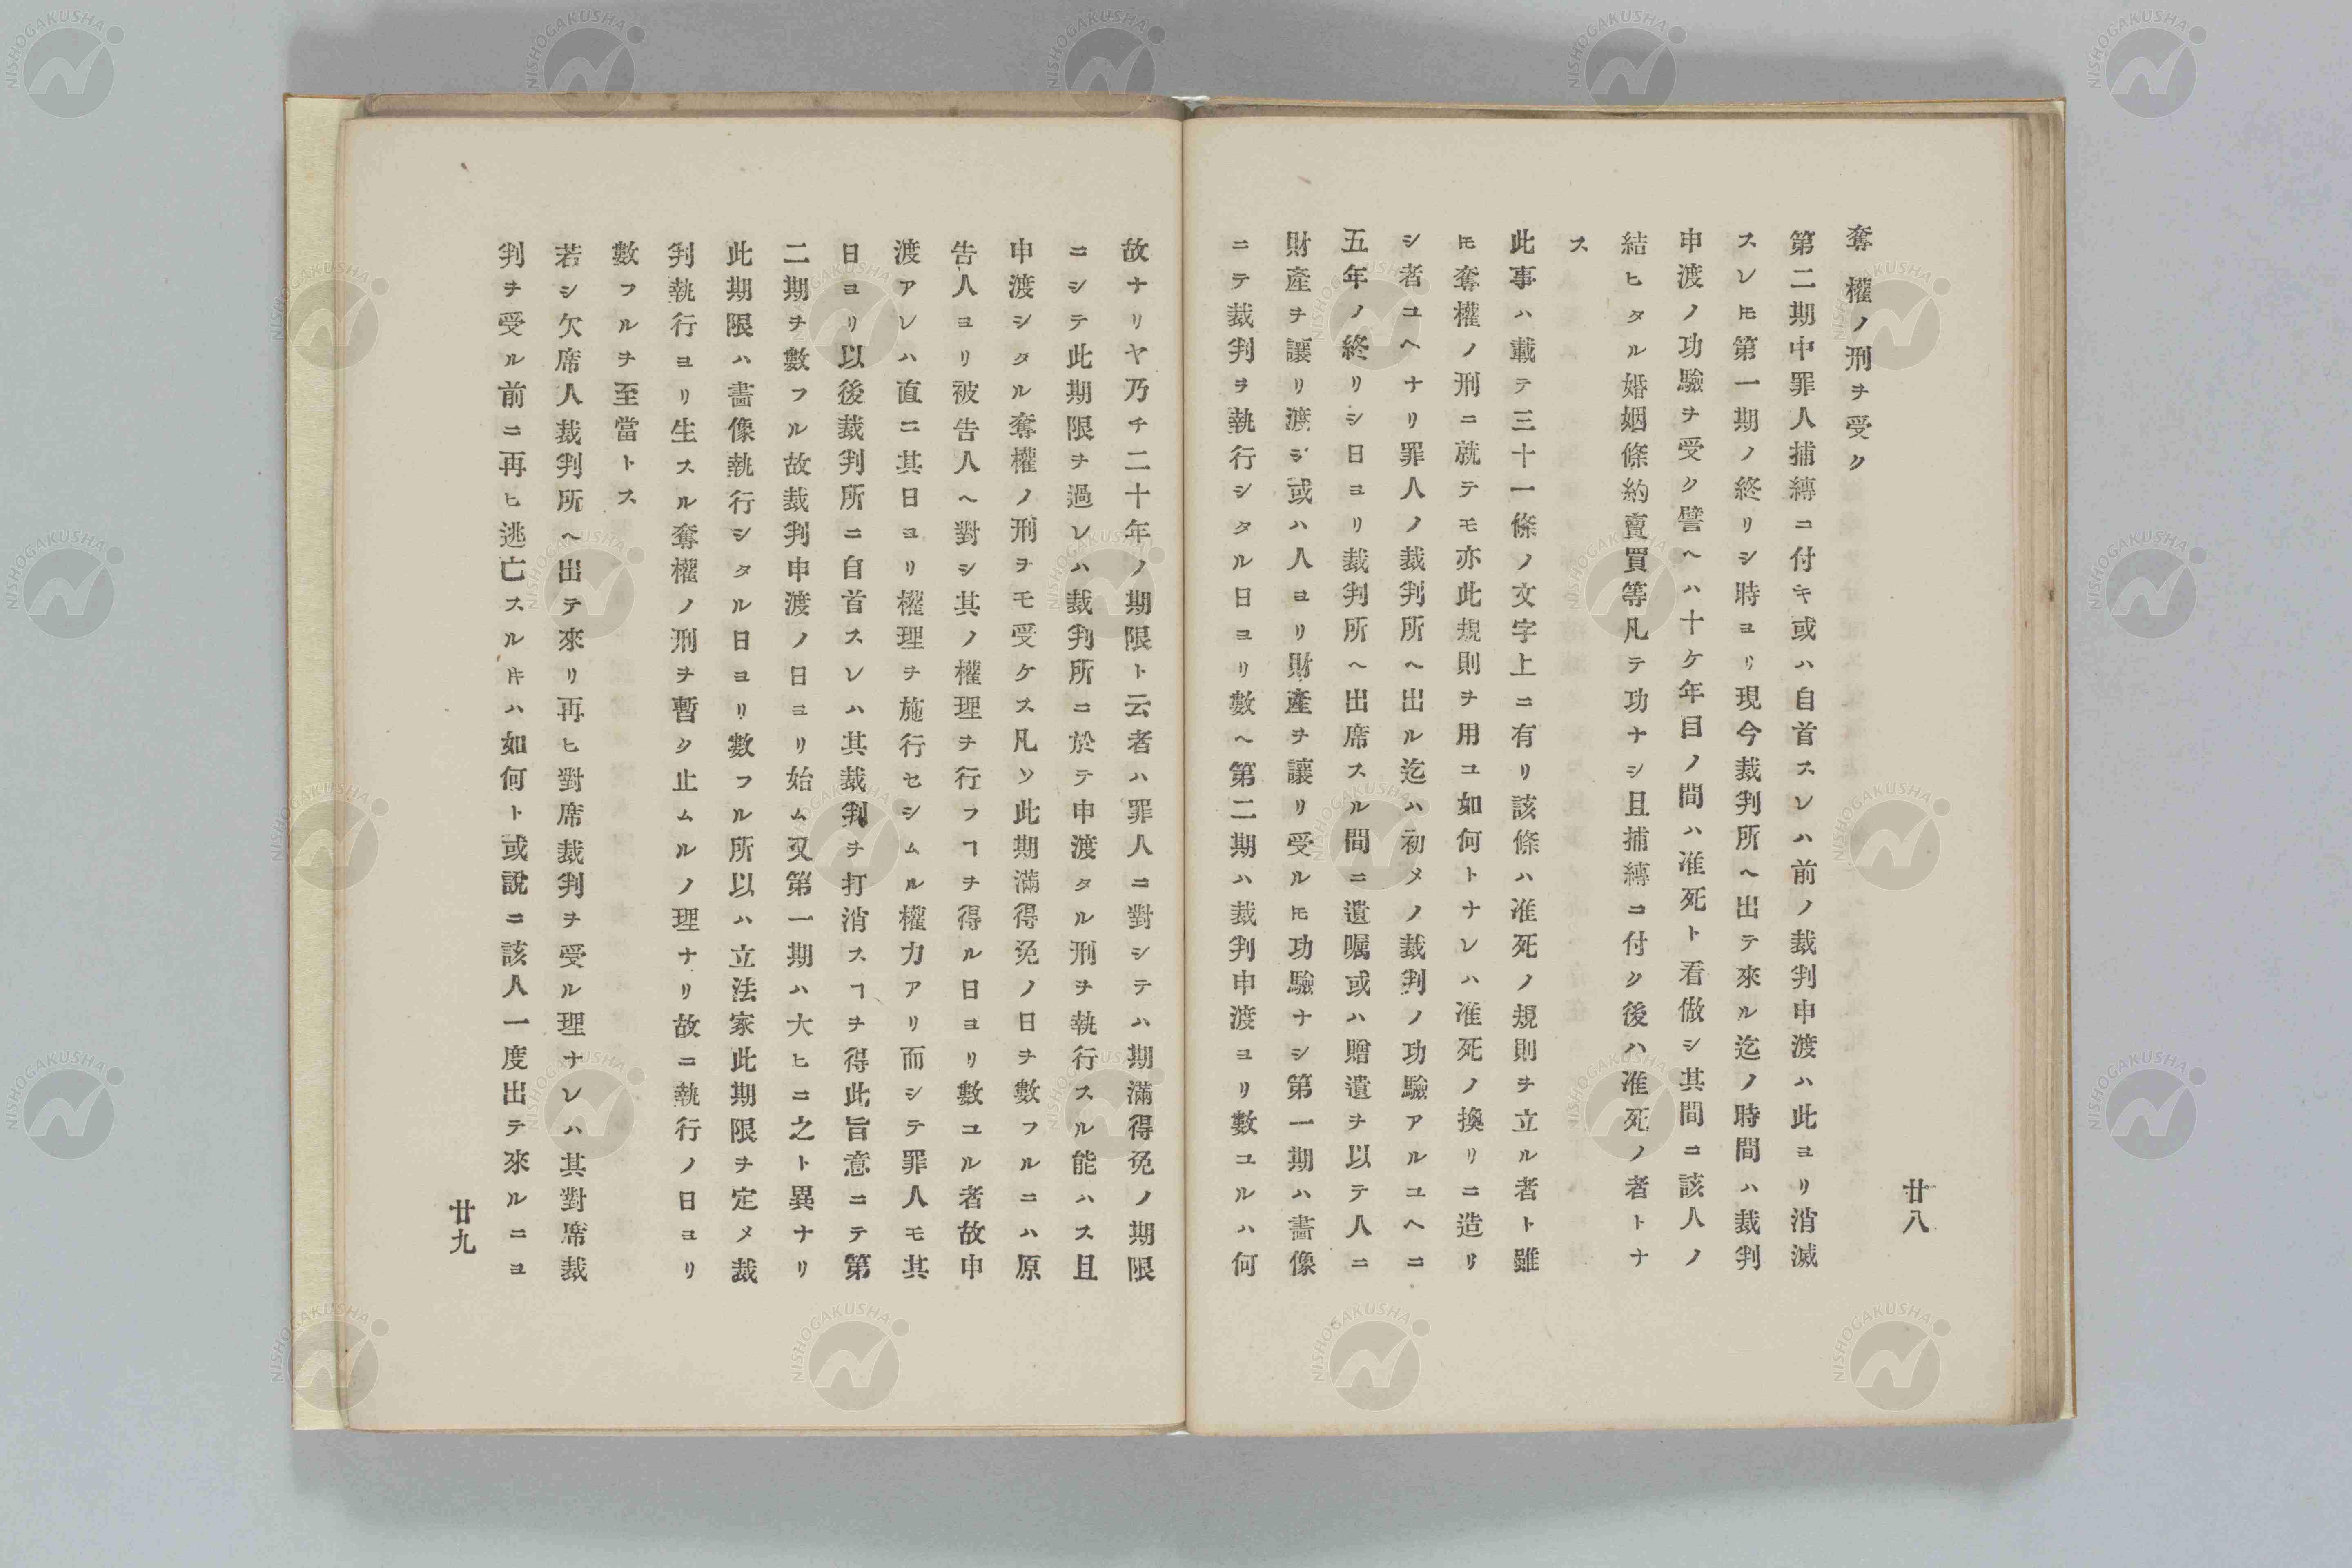 廿八
奪權ノ刑ヲ受ク
第二期中罪人捕縛ニ付キ或ハ自首スレハ前ノ裁判申渡ハ此ヨリ消滅
スレ𪜈第一期ノ終リシ時ヨリ現今裁判所ヘ出テ來ル迄ノ時間ハ裁判
申渡ノ功驗ヲ受ク譬ヘハ十ケ年目ノ間ハ准死ト看做シ其間ニ該人ノ
結ヒタル婚姻條約賣買等凡テ功ナシ且捕縛ニ付ク後ハ准死ノ者トナ
ス
此事ハ載テ三十一條ノ文字上ニ有リ該條ハ准死ノ規則ヲ立ル者ト雖
𪜈奪權ノ刑ニ就テモ亦此規則ヲ用ユ如何トナレハ准死ノ換リニ造リ
シ者ユヘナリ罪人ノ裁判所ヘ出ル迄ハ初メノ裁判ノ功驗アルユヘニ
五年ノ終リシ日ヨリ裁判所ヘ出席スル間ニ遺囑或ハ贈遺ヲ以テ人ニ
財產ヲ讓リ渡シ或ハ人ヨリ財產ヲ讓リ受ル𪜈功驗ナシ第一期ハ畵像
ニテ裁判ヲ執行シタル日ヨリ數ヘ第二期ハ裁判申渡ヨリ數ユルハ何
故ナリヤ乃チ二十年ノ期限ト云者ハ罪人ニ對シテハ期滿得免ノ期限
ニシテ此期限ヲ過レハ裁判所ニ於テ申渡タル刑ヲ執行スル能ハス且
申渡シタル奪權ノ刑ヲモ受ケス凡ソ此期滿得免ノ日ヲ數フルニハ原
告人ヨリ被告人ヘ對シ其ノ權理ヲ行フヿヲ得ル日ヨリ數ユル者故申
渡アレハ直ニ其日ヨリ權理ヲ施行セシムル權力アリ而シテ罪人モ其
日ヨリ以後裁判所ニ自首スレハ其裁判ヲ打消スヿヲ得此旨意ニテ第
二期ヲ數フル故裁判申渡ノ日ヨリ始ム又第一期ハ大ヒニ之ト異ナリ
此期限ハ畵像執行シタル日ヨリ數フル所以ハ立法家此期限ヲ定メ裁
判執行ヨリ生スル奪權ノ刑ヲ暫ク止ムルノ理ナリ故ニ執行ノ日ヨリ
數フルヲ至當トス
若シ欠席人裁判所ヘ出テ來リ再ヒ對席裁判ヲ受ル理ナレハ其對席裁
判ヲ受ル前ニ再ヒ逃亡スル𪜈ハ如何ト或說ニ該人一度出テ來ルニヨ
廿九
NISHOGAKUSHA